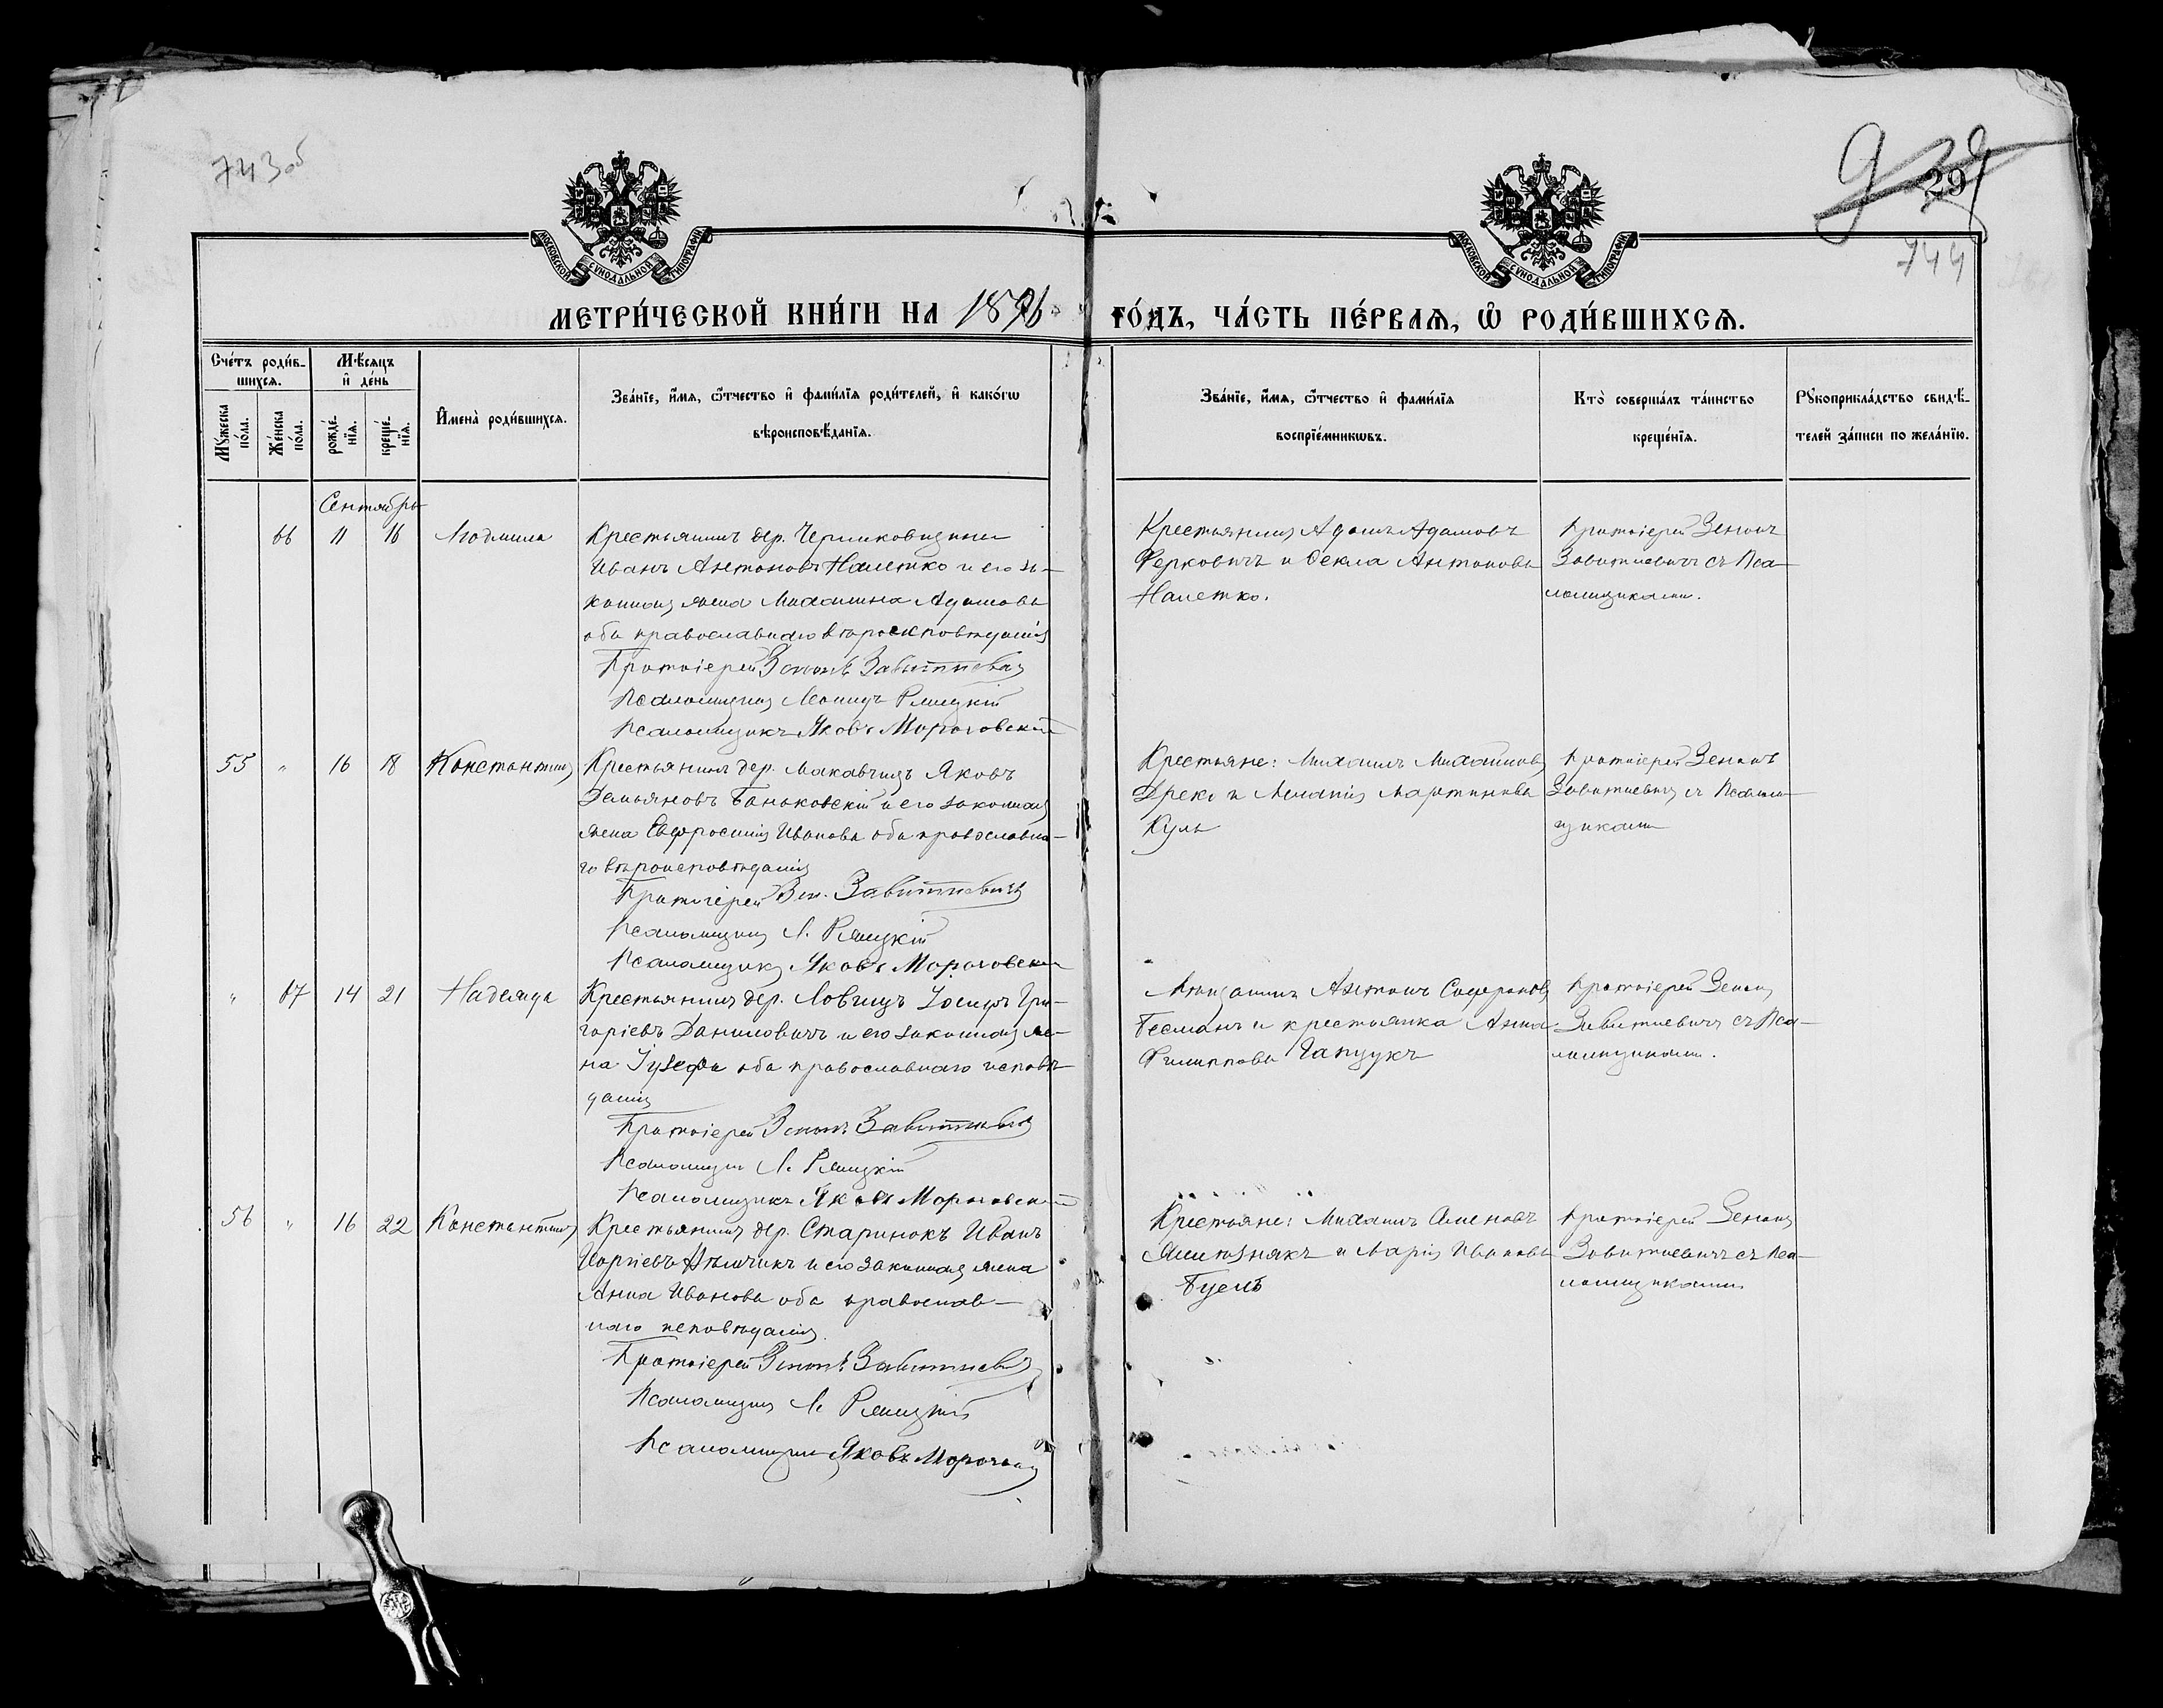 743об
29
744
МОСКОВСКОЙ СѴНОДАЛЬНОЙ ТИПОГРАФІИ
МОСКОВСКОЙ СѴНОДАЛЬНОЙ ТИПОГРАФІИ
МЕТРИ́ЧЕСКОЙ КНИ́ГИ НА 1896 ГО́ДЪ, ЧА́СТЬ ПЕ́РВАѦ, Ѡ҆ РОДИ́ВШИХСѦ.
Сче́тъ роди́в-
шихсѧ.
Мꙋ́жеска по́ла.
Же́нска по́ла.
Мѣ́сѧцъ
и҆ де́нь
рожде́-
нїѧ.
креще́-
нїѧ.
И҆мена̀ роди́вшихсѧ.
Зва́нїе, и҆́мѧ, ѻ҆́тчество и҆ фами́лїѧ роди́телей, и҆ како́гѡ
вѣроисповѣ́данїѧ.
Зва́нїе, и҆́мѧ, ѻ҆́тчество и҆ фами́лїѧ
воспрїе́мникѡвъ.
Кто̀ соверша́лъ та́инство
креще́нїѧ.
Рꙋкоприкла́дство свидѣ́-
телей за́писи по жела́нїю.
Сентябрь
66 11 16 Людмила
Крестьянинъ дер.
Иванъ Антоновъ Налетко и его за-
конная жена Михалина Адамова
оба православнаго вѣроисповѣданія
Протоіерей Зенонъ Завитневичъ
Псаломщикъ Леонидъ
Псаломщикъ Яковъ Мороговскій
Крестьянинъ Адамъ Адамовъ
Ферковичъ и Ѳекла Антонова
Налетко.
Протоіерей Зенонъ
Завитневичъ съ Пса-
ломщиками.
55 " 16 18 Константинъ
Крестьянинъ дер. Яковъ
Демьяновъ Баньковскій и его законная
жена Евфросинія Иванова оба православна-
го вѣроисповѣданія
Протоіерей Зен. Завитневичъ
Псаломщикъ Л.
Псаломщикъ Яковъ Мороговскій
Крестьяне: Михаилъ Михайловъ
и Меланія Мартинова
Куль
Протоіерей Зенонъ
Завитневичъ съ Псалом-
щиками
" 67 14 21 Надежда
Крестьянинъ дер. Ловчицъ Іосифъ Гри-
горіевъ Даниловичъ и его законная же-
на Іузефа оба православнаго исповѣ-
данія
Протоіерей Зенонъ Завитневичъ
Псаломщикъ Л.
Псаломщикъ Яковъ Мороговскій
Мѣщанинъ Антонъ Софроновъ
и крестьянка Анна
Филиппова Гапцукъ
Протоіерей Зенонъ
Завитневичъ съ Пса-
ломщиками.
56 " 16 22 Константинъ
Крестьянинъ дер. Старинокъ Иванъ
и его законная жена
Анна Иванова оба православ-
наго исповѣданія.
Протоіерей Зенонъ Завитневичъ
Псаломщикъ Л.
Псаломщикъ Яковъ Мороговскій
Крестьяне: Михаилъ Семеновъ
и Марія Иванова
Буель
Протоіерей Зенонъ
Завитневичъ съ Пса-
ломщиками